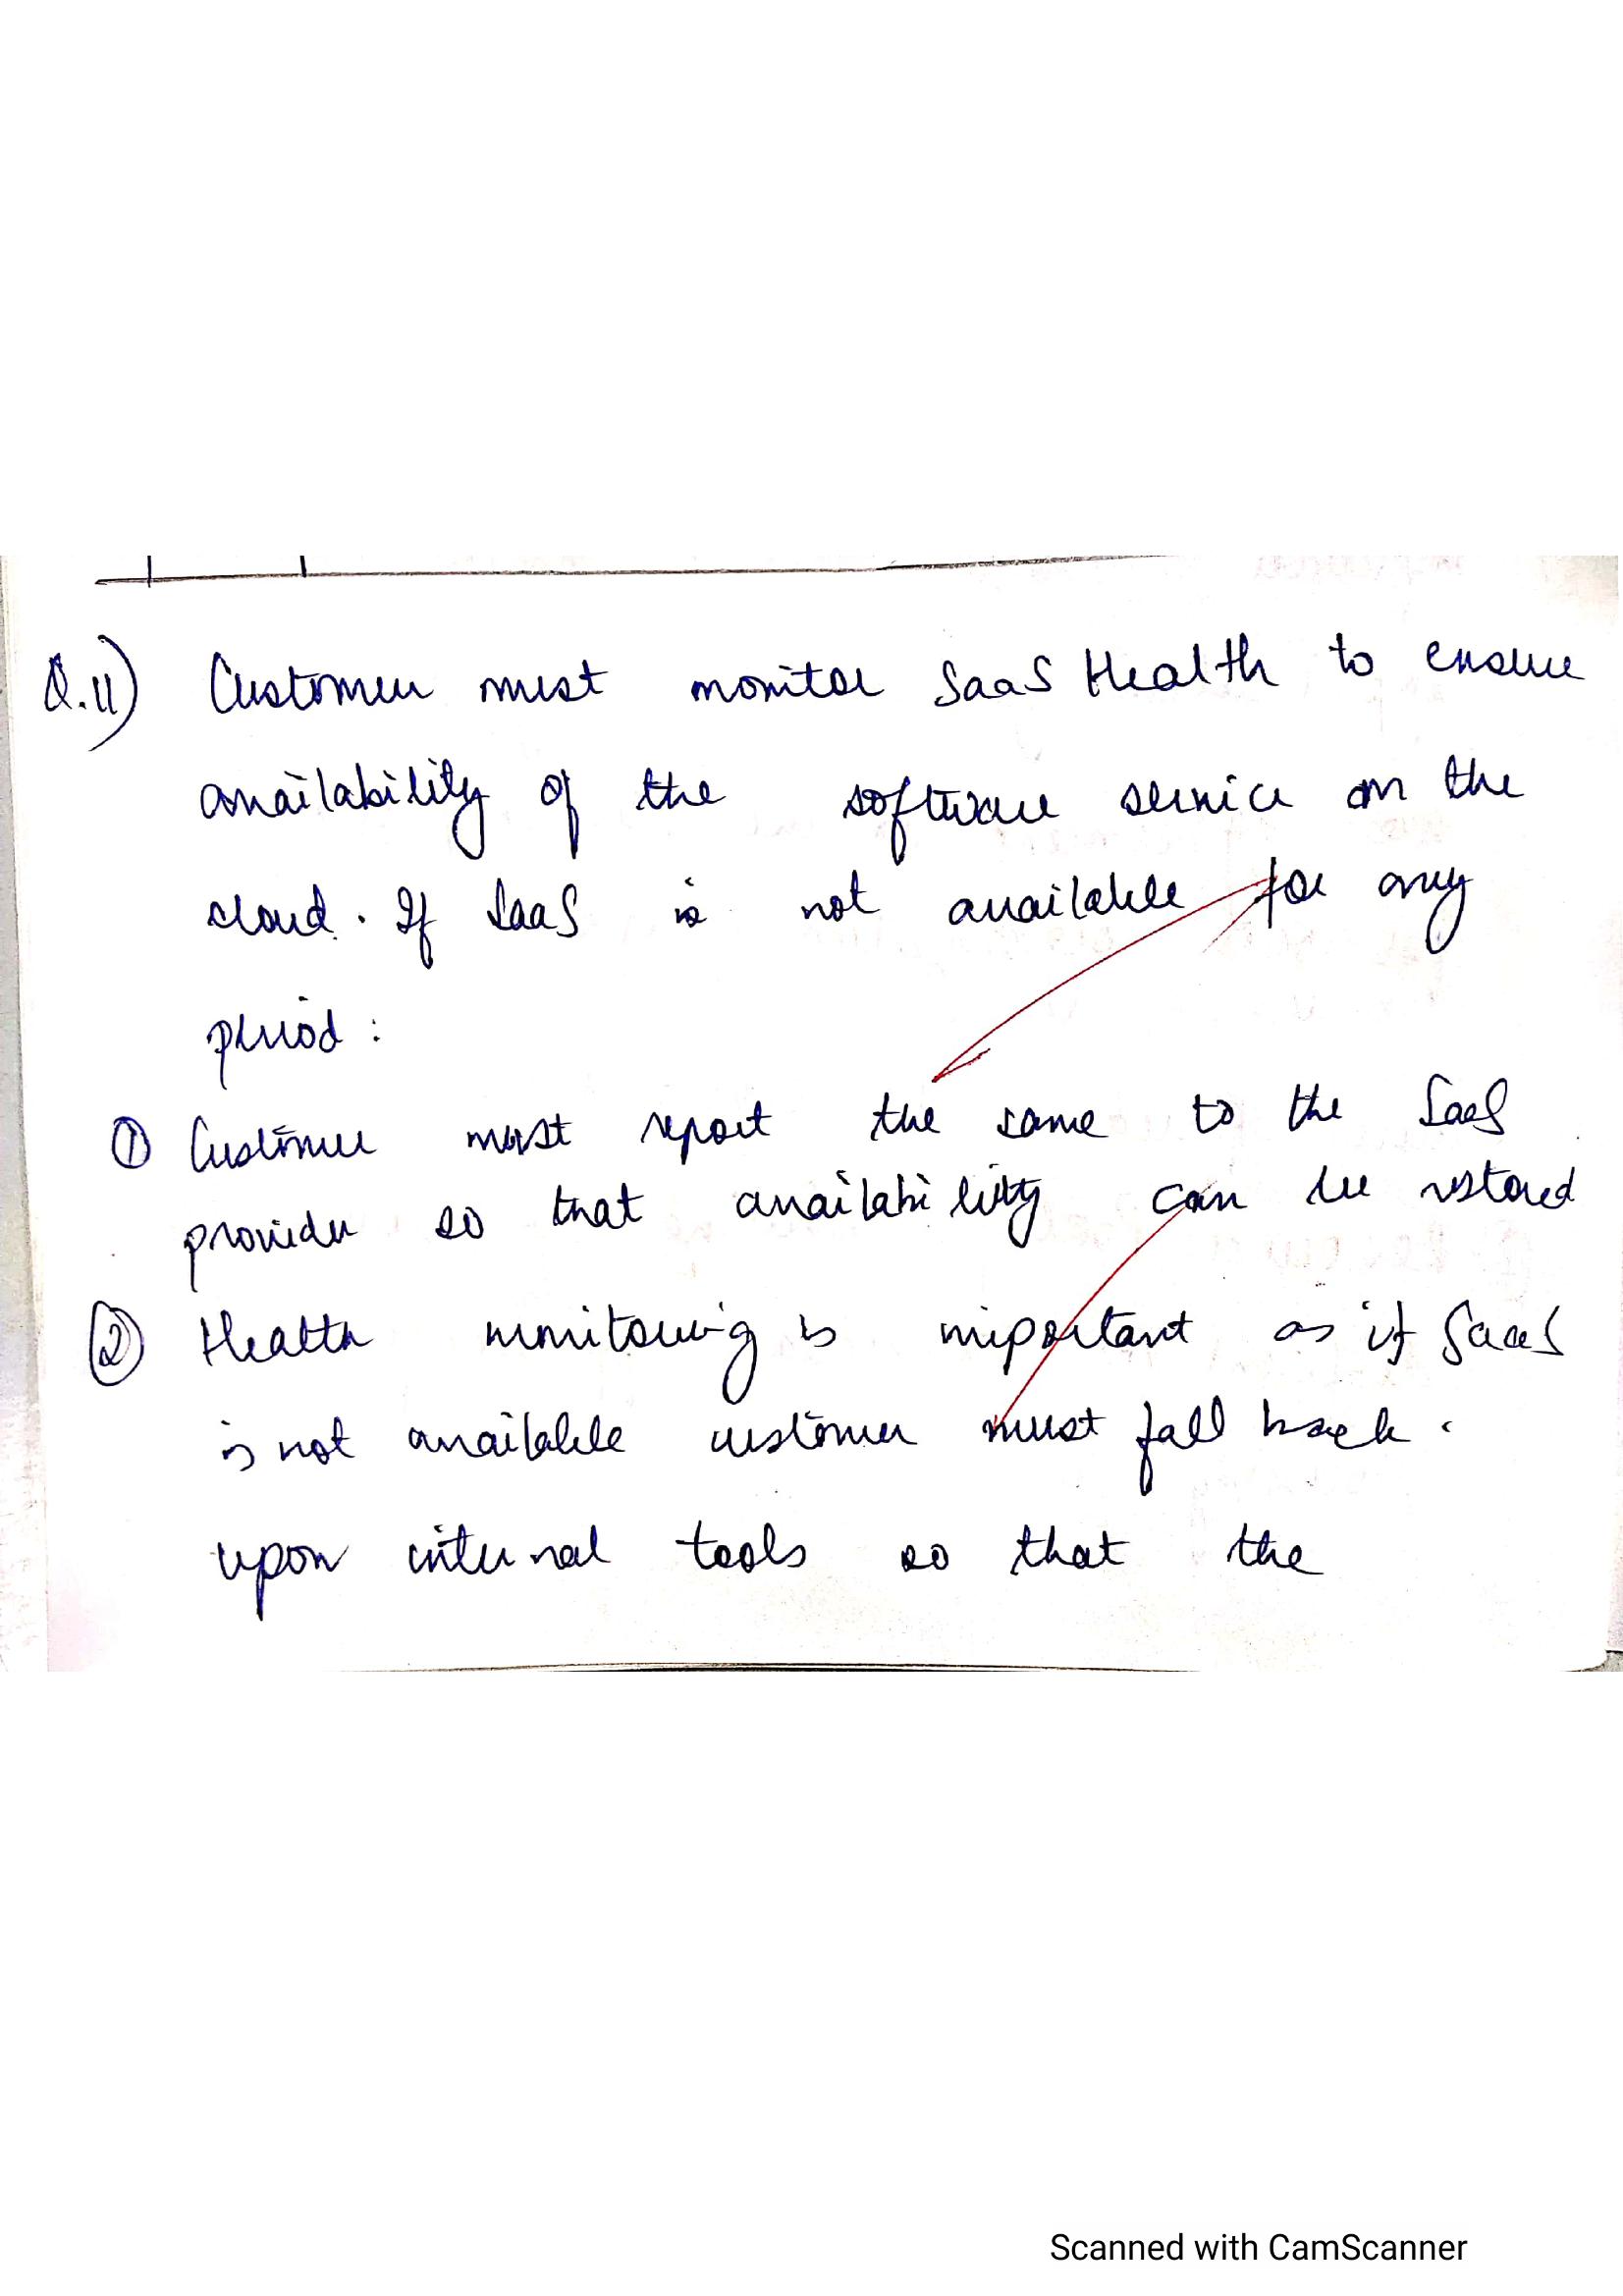 Q.11) Customer must monitor SaaS Health to ensure
availability of the software service on the
cloud. If SaaS is not available for any
period :
① Customer must report the same to the SaaS
provider so that availability can be restored
② Health monitoring is important as if SaaS
is not available customer must fall back.
upon internal tools so that the
Scanned with CamScanner